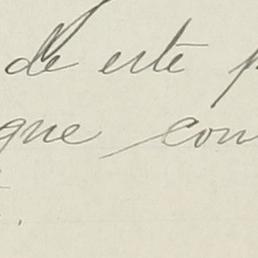 de este
que con